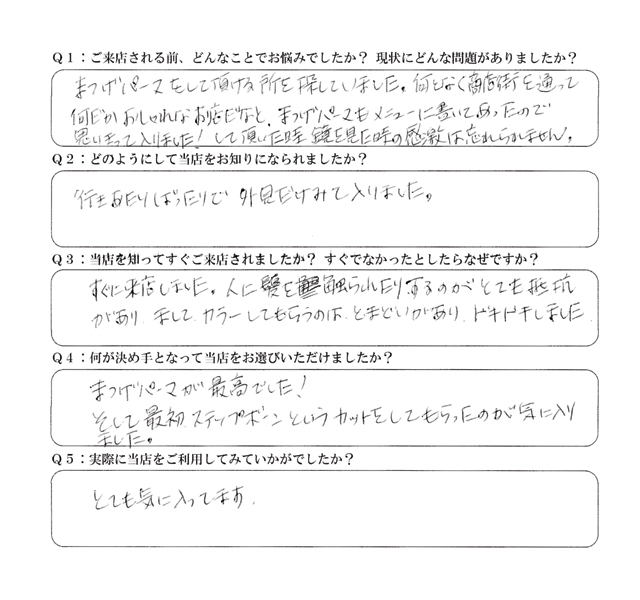 Q1：ご来店される前、どんなことでお悩みでしたか？ 現状にどんな問題がありましたか？
まつげパーマをして頂ける所を探していました。何となく商店街を通って
何だかおしゃれなお店だなと、まつげパーマもメニューに書いてあったので
思い立って入りました！して頂いた時 鏡を見た時の感激は忘れられません。
Q2：どのようにして当店をお知りになられましたか？
行きあたりばったりで 外見だけみて入りました。
Q3：当店を知ってすぐご来店されましたか？ すぐでなかったとしたらなぜですか？
すぐに来店しました。人に髪を触られたりするのがとても抵抗
があり、まして カラーしてもらうのは、とまどいがあり、ドキドキしました
Q4：何が決め手となって当店をお選びいただけましたか？
まつげパーマが最高でした！
そして最初、ステップボーンというカットをしてもらったのが気に入り
ました。
Q5：実際に当店をご利用してみていかがでしたか？
とても気に入ってます.